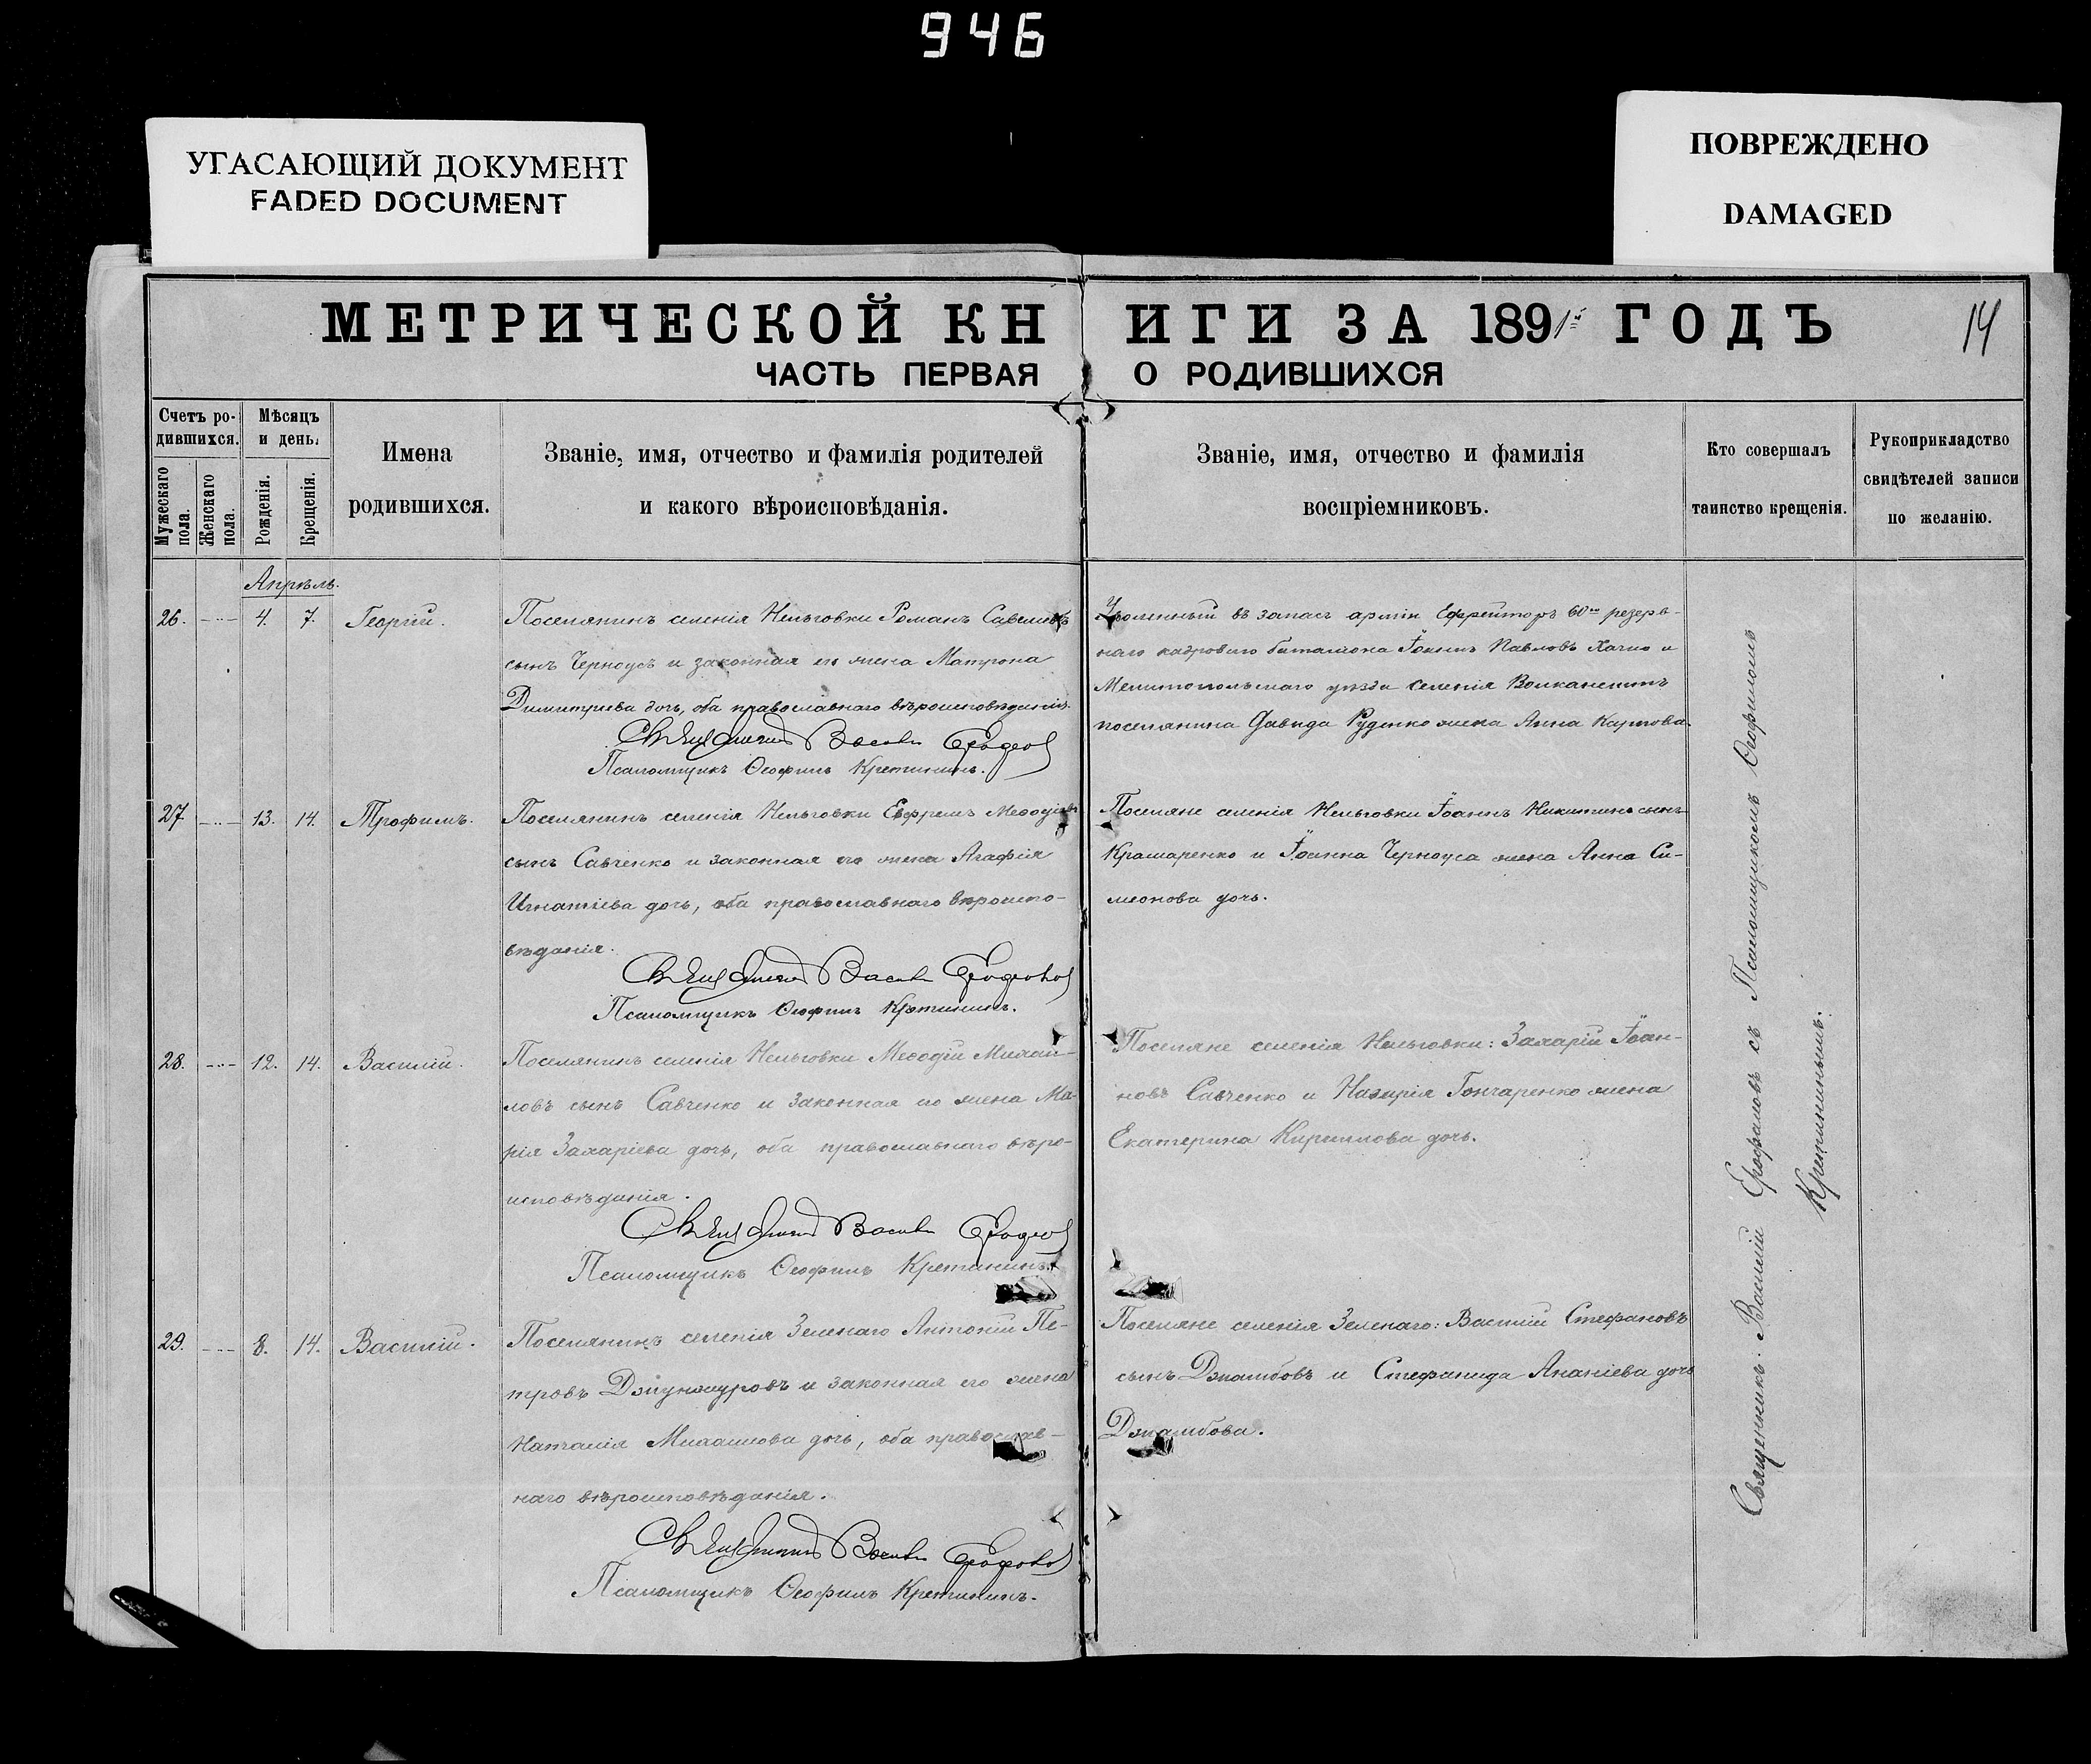 946
УГАСАЮЩИЙ ДОКУМЕНТ
FADED DOCUMENT
ПОВРЕЖДЕНО
DAMAGED
МЕТРИЧЕСКОЙ КНИГИ ЗА 1891й ГОДЪ
14
ЧАСТЬ ПЕРВАЯ О РОДИВШИХСЯ
Счетъ ро-
дившихся.
Мужескаго пола.
Женскаго пола.
Мѣсяцъ
и день.
Рожденія.
Крещенія.
Имена
родившихся.
Званіе, имя, отчество и фамилія родителей
и какого вѣроисповѣданія.
Званіе, имя, отчество и фамилія
воспріемниковъ.
Кто совершалъ
таинство крещенія.
Рукоприкладство
свидѣтелей записи
по желанію.
Апрѣль.
26. 4. 7. Георгій.
Поселянинъ селенія Нельговки Романъ Савельевъ
сынъ Черноусъ и законная его жена Матрона
Димитріева дочь, оба православнаго вѣроисповѣданія.
Священникъ Василій
Псаломщикъ Ѳеофилъ Кретининъ.
Уволенный въ запасъ арміи Ефрейторъ 60го резерв-
наго кадроваго баталіона Іоаннъ Павловъ и
Мелитопольскаго уѣзда селенія
поселянина Давида Руденко жена Анна Карпова.
27 13. 14. Трофимъ.
Поселянинъ селенія Нельговки Ефремъ Меѳодіевъ
сынъ Савченко и законная его жена Агафія
Игнатіева дочь, оба православнаго вѣроиспо-
вѣданія.
Священникъ Василій
Псаломщикъ Ѳеофилъ Кретининъ.
Поселяне селенія Нельговки Іоаннъ Никитинъ сынъ
Крамаренко и Іоанна Черноуса жена Анна Си-
меонова дочь.
28. 12. 14. Василій.
Поселянинъ селенія Нельговки Меѳодій Михаи-
ловъ сынъ Савченко и законная его жена Ма-
рія Захаріева дочь, оба православнаго вѣро-
исповѣданія.
Священникъ Василій
Псаломщикъ Ѳеофилъ Кретининъ.
Поселяне селенія Нельговки: Захарій Іоан-
новъ Савченко и Назарія Гончаренко жена
Екатерина Кириллова дочь.
29. 8. 14. Василій.
Поселянинъ селенія Зеленаго Антоній Пе-
тровъ и законная его жена
Наталія Михаилова дочь, оба православ-
наго вѣроисповѣданія.
Священникъ Василій
Псаломщикъ Ѳеофилъ Кретининъ.
Поселяне селенія Зеленаго: Василій Стефановъ
сынъ Джамбовъ и Стефанида Ананіева дочь
Джамбова.
Священникъ Василій съ Псаломщикомъ Ѳеофиломъ
Кретининымъ.